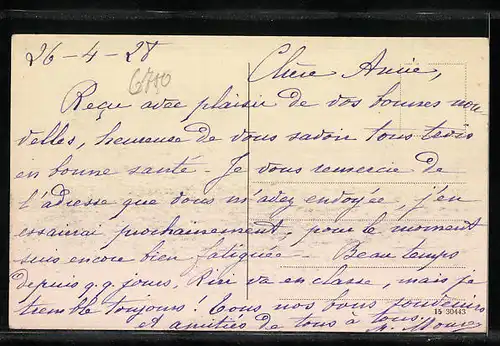 26-4-28
6750
Chère Amie,
Reçu avec plaisir de vos bonnes nou
velles, heureuse de vous savoir tous trois
en bonne santé - Je vous remercie de
l'adresse que vous m'avez envoyée, j'en
essaierai prochainement, pour le moment
suis encore bien fatiguée - Beau temps
depuis q.q. jours, va en classe, mais je
tremble toujours! Tous nos bons souvenirs
et amitiés de tous à tous.
15 30443